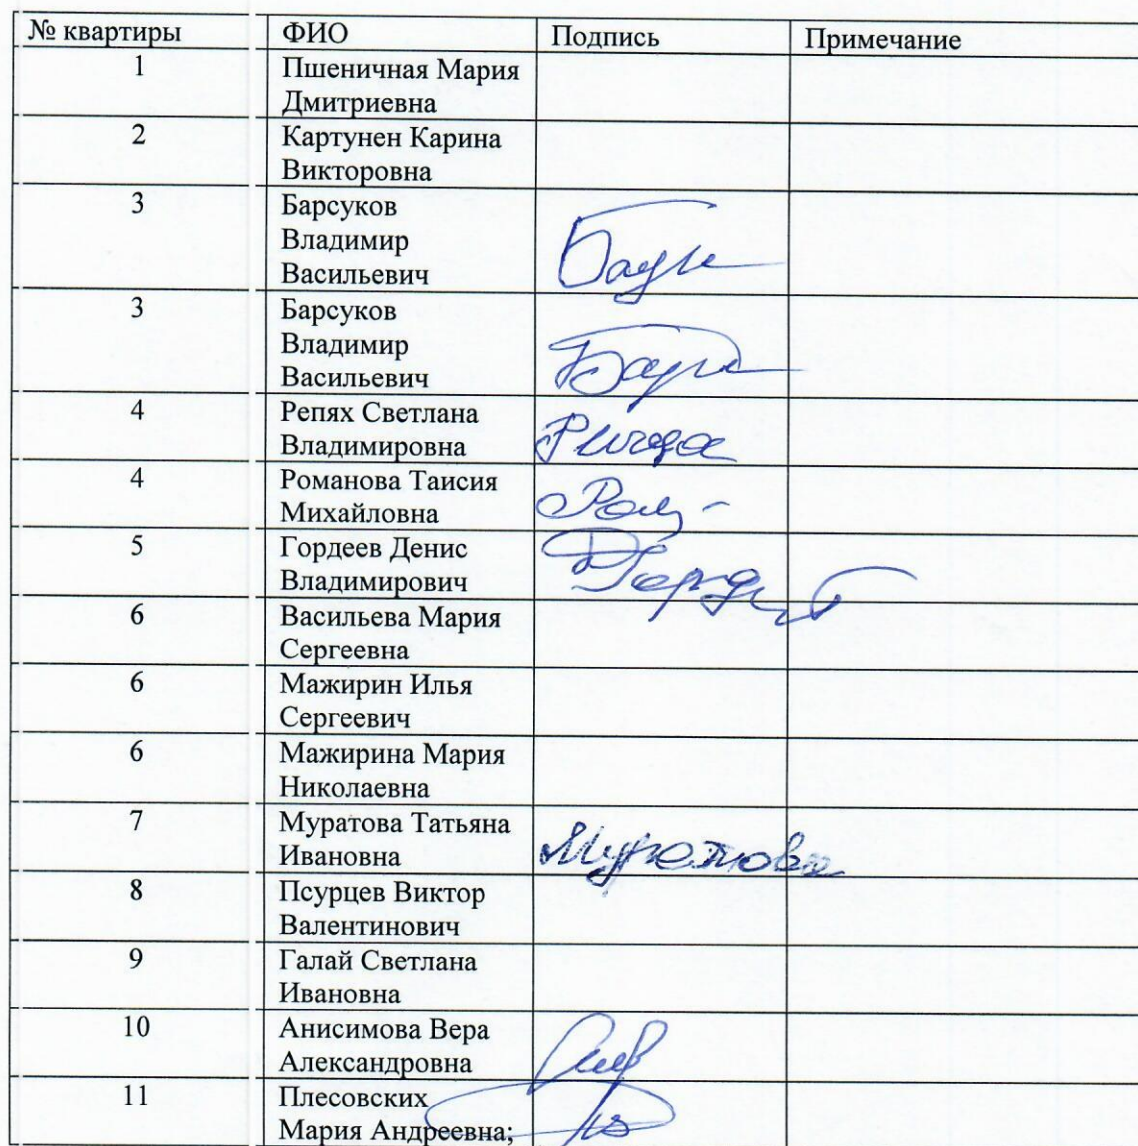 № квартиры ФИО Подпись Примечание
1 Пшеничная Мария
Дмитриевна
2 Картунен Карина
Викторовна
3 Барсуков
Владимир
Васильевич
3 Барсуков
Владимир
Васильевич
4 Репях Светлана
Владимировна
4 Романова Таисия
Михайловна
5 Гордеев Денис
Владимирович
6 Васильева Мария
Сергеевна
6 Мажирин Илья
Сергеевич
6 Мажирина Мария
Николаевна
7 Муратова Татьяна
Ивановна Муратова
8 Псурцев Виктор
Валентинович
9 Галай Светлана
Ивановна
10 Анисимова Вера
Александровна
11 Плесовских
Мария Андреевна;